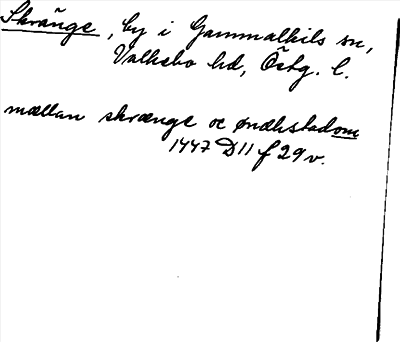 Skränge, by i Gammalkils sn,
Valkebo hd, Östg. l.
mællan skrænge oc ønækstadom
1447 D11 f 29 v.